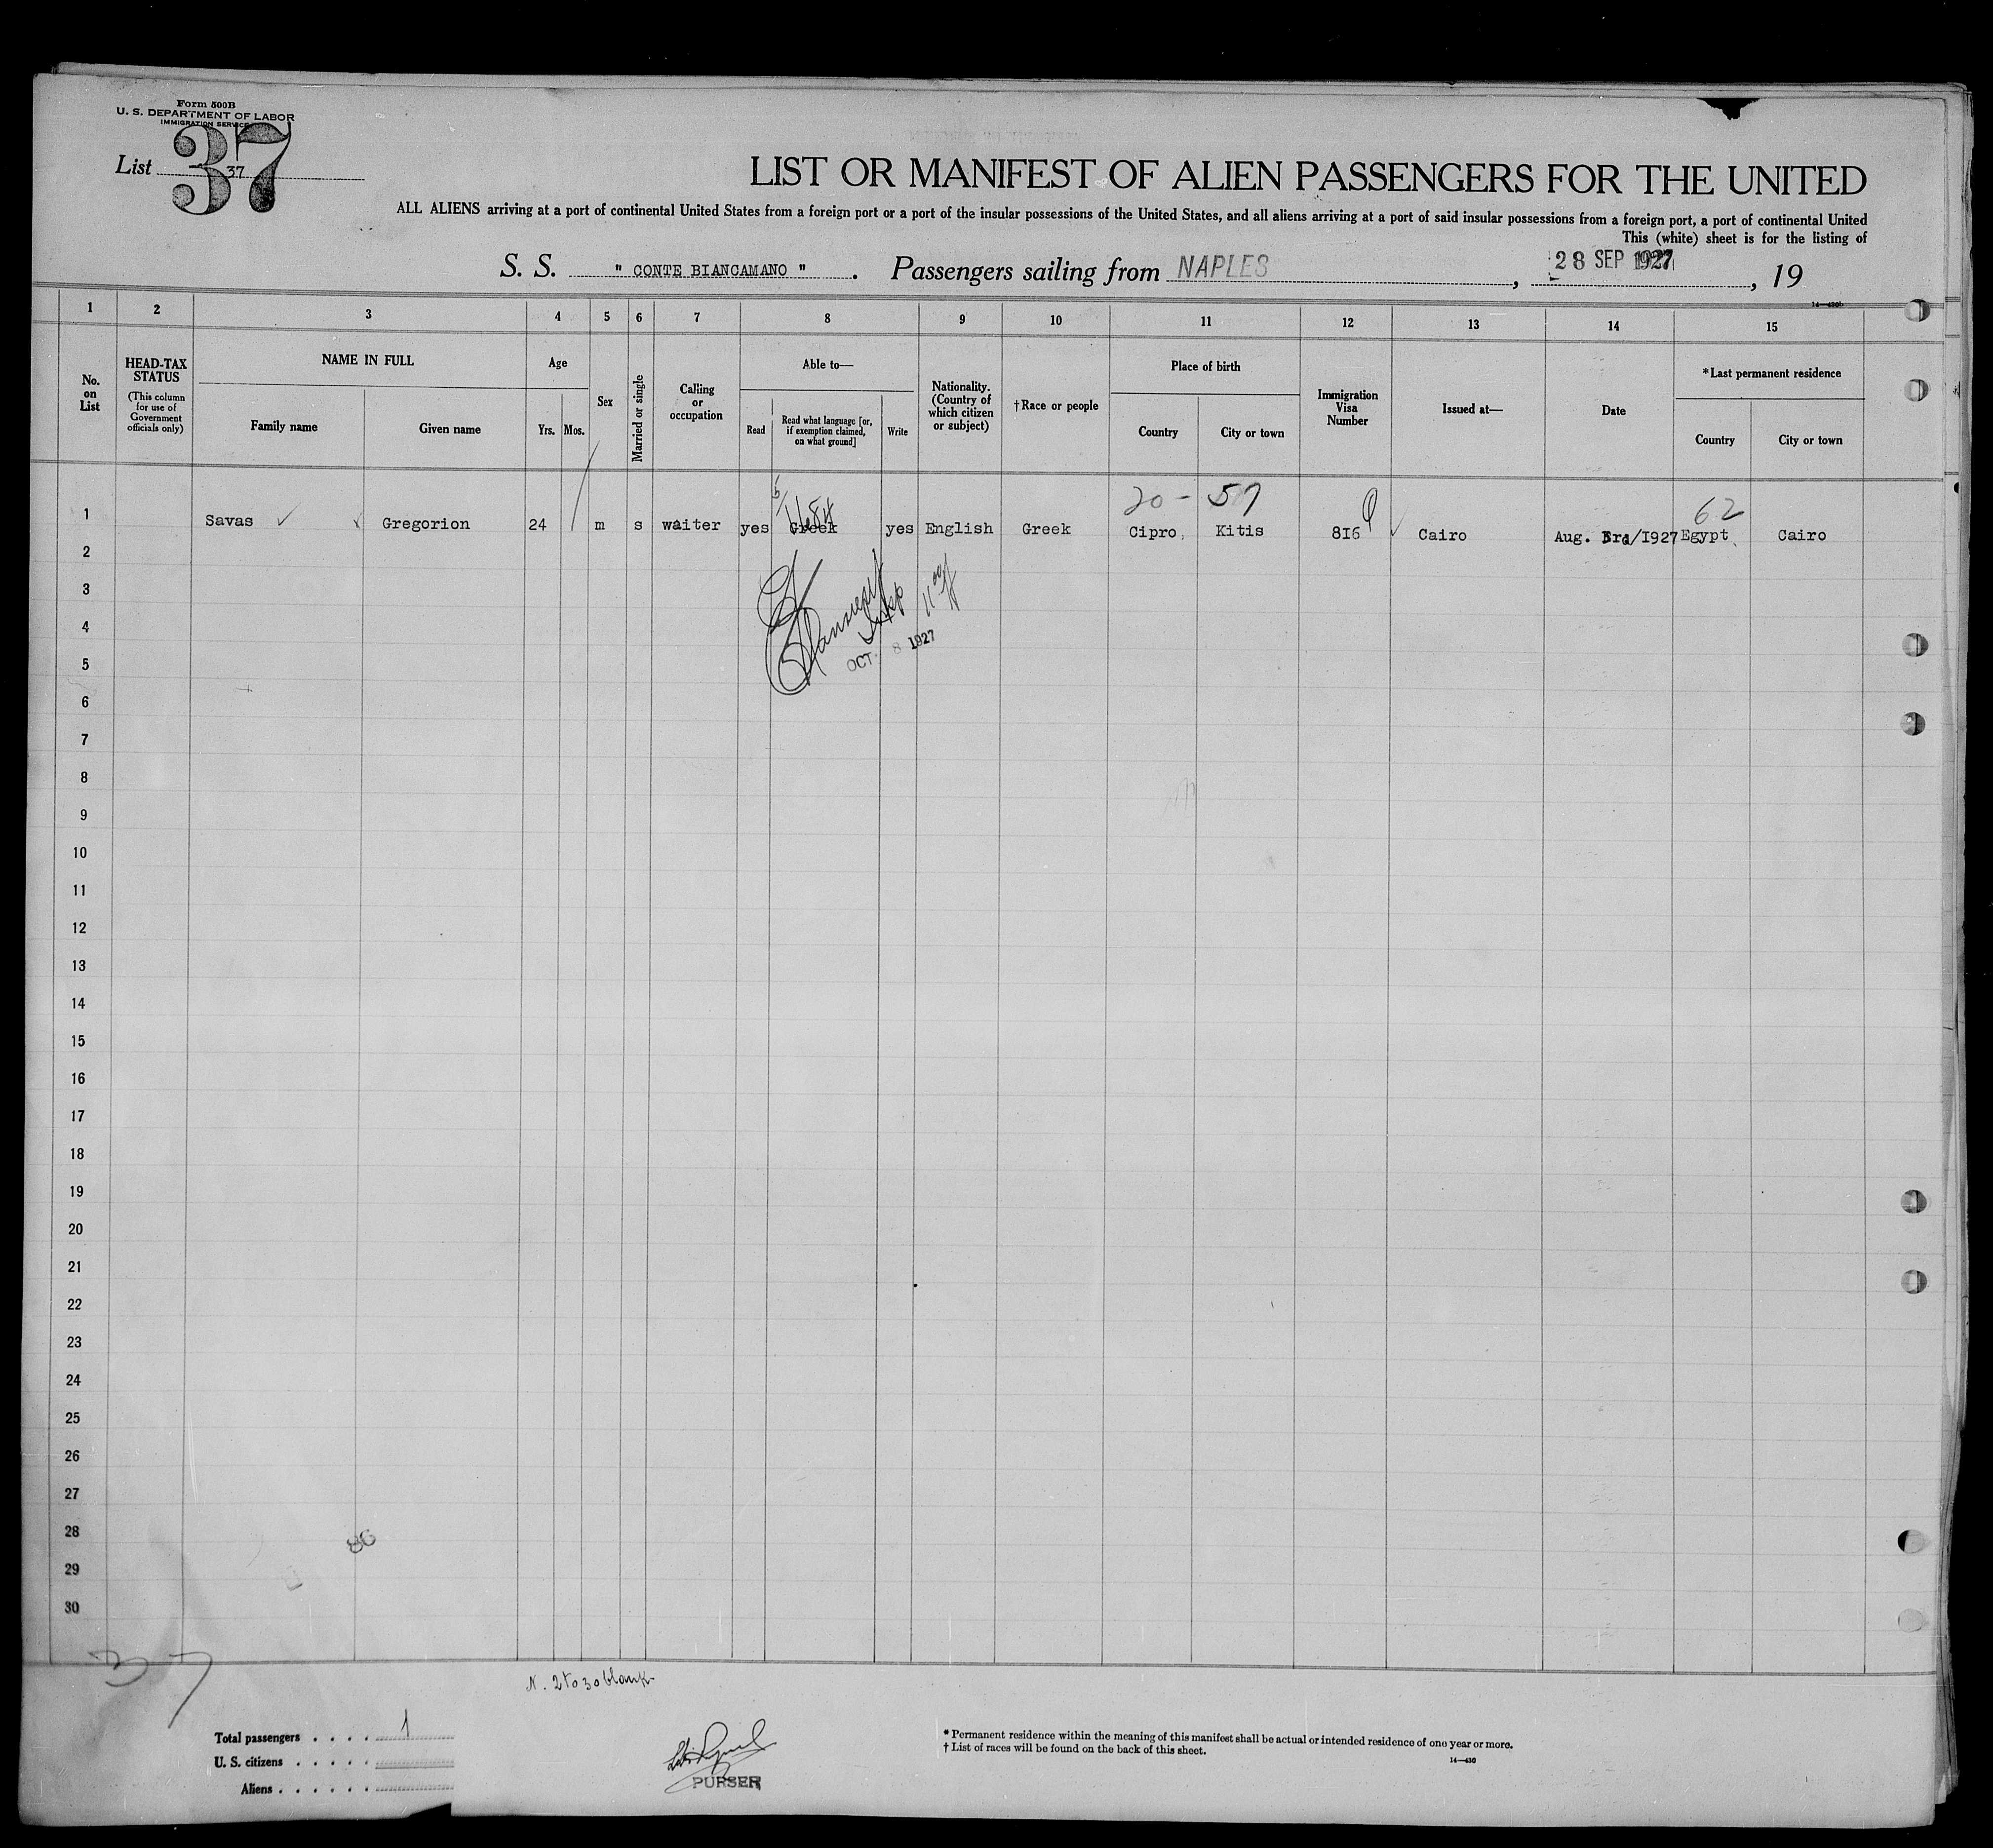 Form 500B
U. S. DEPARTMENT OF LABOR
IMMIGRATION SERVICE
List 37
37
LIST OR MANIFEST OF ALIEN PASSENGERS FOR THE UNITED
ALL ALIENS arriving at a port of continental United States from a foreign port or a port of the insular possessions of the United States, and all aliens arriving at a port of said insular possessions from a foreign port, a port of continental United
This (white) sheet is for the listing of
S. S. " CONTE BIANCAMANO " . Passengers sailing from NAPLES , 28 SEP 1927 , 19
14—430b
1 2 3 4 5 6 7 8 9 10 11 12 13 14 15
No. on List
HEAD-TAX STATUS
(This column for use of Government officials only)
NAME IN FULL
Family name
Given name
Age
Yrs. Mos.
Sex
Married or single
Calling or occupation
Able to—
Read
Read what language [or, if exemption claimed, on what ground]
Write
Nationality. (Country of which citizen or subject)
†Race or people
Place of birth
Country
City or town
Immigration Visa Number
Issued at—
Date
*Last permanent residence
Country
City or town
20 - 57
62
1 Savas Gregorion 24 m s waiter yes Greek yes English Greek Cipro, Kitis 816 Cairo Aug. 3rd/1927 Egypt Cairo
2
3
4
Insp
OCT 8 1927
5
6
7
8
9
10
11
12
13
14
15
16
17
18
19
20
21
22
23
24
25
26
27
28
86
29
30
37
N. 2 to 30 blank
Total passengers . . . . 1
U. S. citizens . . . . .
Aliens . . . . . .
PURSER
* Permanent residence within the meaning of this manifest shall be actual or intended residence of one year or more.
† List of races will be found on the back of this sheet.
14—430